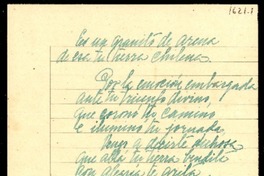 1621.1
Es un granito de arena
de esa tu tierra chilena
Por la emoción embargada
ante tu triunfo divino,
que coronó tu camino
e iluminó tu jornada
vengo a decirte dichosa
que allá tu tierra bendita
con alegría te